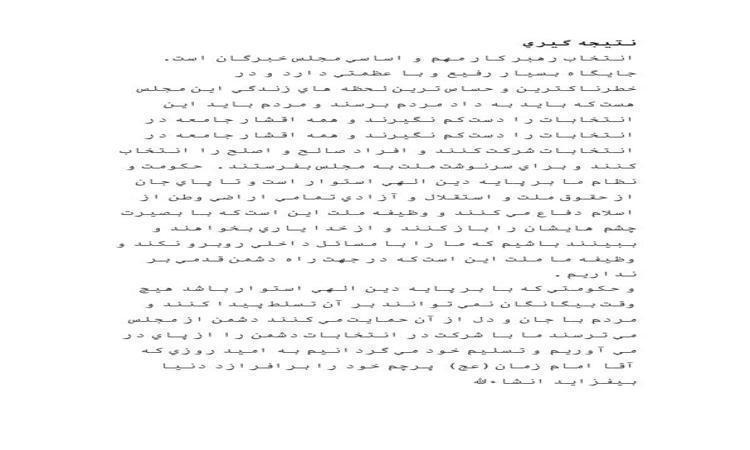 نتيجه گيري
انتخاب رهبر كار مهم و اساسي مجلس خبرگان است.
جايگاه بسيار رفيع و با عظمتي دارد و در
خطرناكترين و حساس ترين لحظه هاي زندگي اين مجلس
هست كه بايد به داد مردم برسند و مردم بايد اين
انتخابات را دست كم نگيرند و همه اقشار جامعه در
انتخابات را دست كم نگيرند و همه اقشار جامعه در
انتخابات شركت كنند و افراد صالح و اصلح را انتخاب
كنند و براي سرنوشت ملت به مجلس بفرستند. حكومت و
نظام ما بر پايه دين الهي استوار است و تا پاي جان
از حقوق ملت و استقلال و آزادي تمامي اراضي وطن از
اسلام دفاع مي كنند و وظيفه ملت اين است كه با بصيرت
چشم هايشان را باز كنند و از خدا ياري بخواهند و
ببينند باشيم كه ما را با مسائل داخلي روبرو نكند و
وظيفه ما ملت اين است كه در جهت راه دشمن قدمي بر
نداريم.
و حكومتي كه با بر پايه دين الهي استوار باشد هيچ
وقت بيگانگان نمي توانند بر آن تسلط پيدا كنند و
مردم با جان و دل از آن حمايت مي كنند دشمن از مجلس
مي ترسند ما با شركت در انتخابات دشمن را از پاي در
مي آوريم و تسليم خود مي گردانيم به اميد روزي كه
آقا امام زمان (عج) پرچم خود را بر افرازد دنيا
بيفزايد انشاءالله